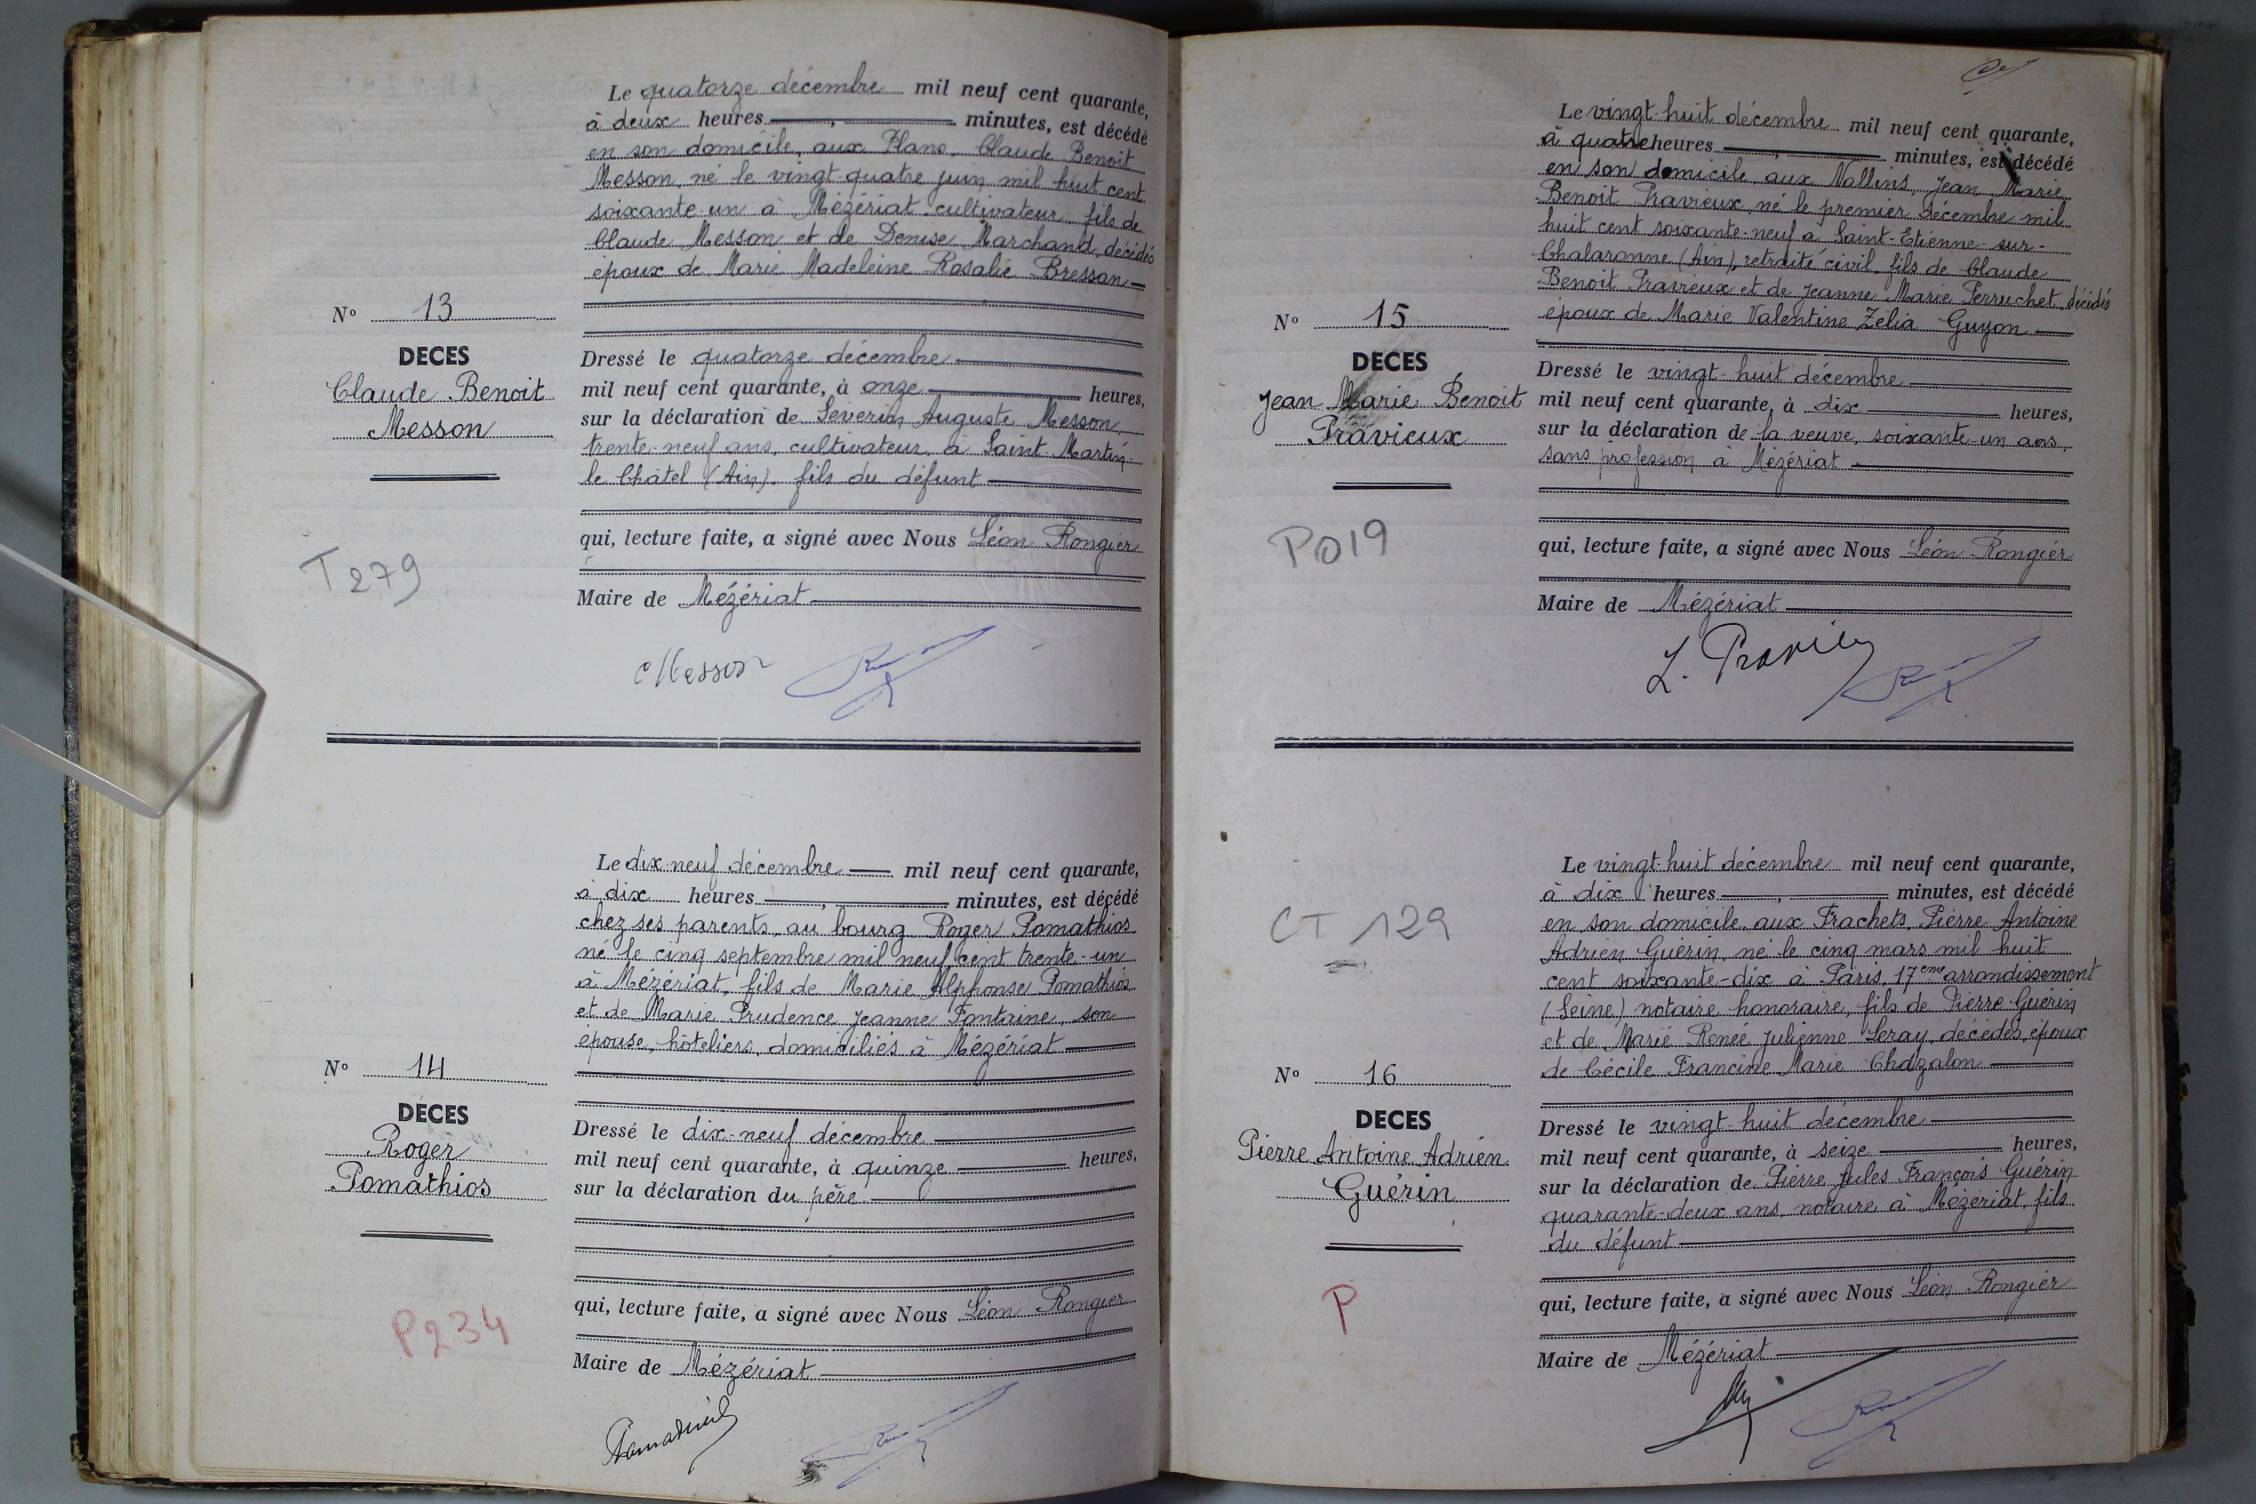 Le quatorze décembre mil neuf cent quarante,
à deux heures, minutes, est décédé
en son domicile, aux Plans, Claude Benoit
Messon, né le vingt-quatre juin mil huit cent
soixante-un à Mézériat, cultivateur, fils de
Claude Messon et de Denise Marchand, décédés
époux de Marie Madeleine Rosalie Bresson
N° 13
DECES
Claude Benoit
Messon
Dressé le quatorze décembre
mil neuf cent quarante, à onze heures,
sur la déclaration de Séverin Auguste Messon,
trente-neuf ans, cultivateur, à Saint-Martin-
le Châtel (Ain), fils du défunt
qui, lecture faite, a signé avec Nous Léon Rongier
Maire de Mézériat
T 279
Messon
Le dix-neuf décembre mil neuf cent quarante,
à dix heures, minutes, est décédé
chez ses parents, au bourg, Roger Pomathios
né le cinq septembre mil neuf cent trente-un
à Mézériat, fils de Marie Alphonse Pomathios
et de Marie Prudence Jeanne Fontaine, son
épouse, hoteliers, domiciliés à Mézériat
N° 14
DECES
Roger
Pomathios
Dressé le dix-neuf décembre
mil neuf cent quarante, à quinze heures,
sur la déclaration du père
qui, lecture faite, a signé avec Nous Léon Rongier
Maire de Mézériat
P234
Le vingt-huit décembre mil neuf cent quarante,
à quatre heures, minutes, est décédé
en son domicile, aux Vallins, Jean Marie
Benoit Pravieux, né le premier décembre mil
huit cent soixante-neuf à Saint-Etienne-sur-
Chalaronne (Ain), retraité civil, fils de Claude
Benoit Pravieux et de Jeanne Marie Perruchet, décédés
époux de Marie Valentine Zélia Guyon
N° 15
DECES
Jean Marie Benoit
Pravieux
Dressé le vingt-huit décembre
mil neuf cent quarante, à dix heures,
sur la déclaration de la veuve, soixante-un ans,
sans profession à Mézériat
qui, lecture faite, a signé avec Nous Léon Rongier
Maire de Mézériat
P019
Le vingt-huit décembre mil neuf cent quarante,
à dix heures, minutes, est décédé
en son domicile, aux Frachets, Pierre Antoine
Adrien Guérin, né le cinq mars mil huit
cent soixante-dix à Paris, 17ème arrondissement
(Seine) notaire honoraire, fils de Pierre Guérin
et de Marie Renée Julienne Leray, décédés, époux
de Cécile Francine Marie Chazalon
CT 129
N° 16
DECES
Pierre Antoine Adrien
Guérin
Dressé le vingt-huit décembre
mil neuf cent quarante, à seize heures,
sur la déclaration de Pierre Jules François Guérin
quarante-deux ans, notaire à Mézériat, fils
du défunt
qui, lecture faite, a signé avec Nous Léon Rongier
Maire de Mézériat
P